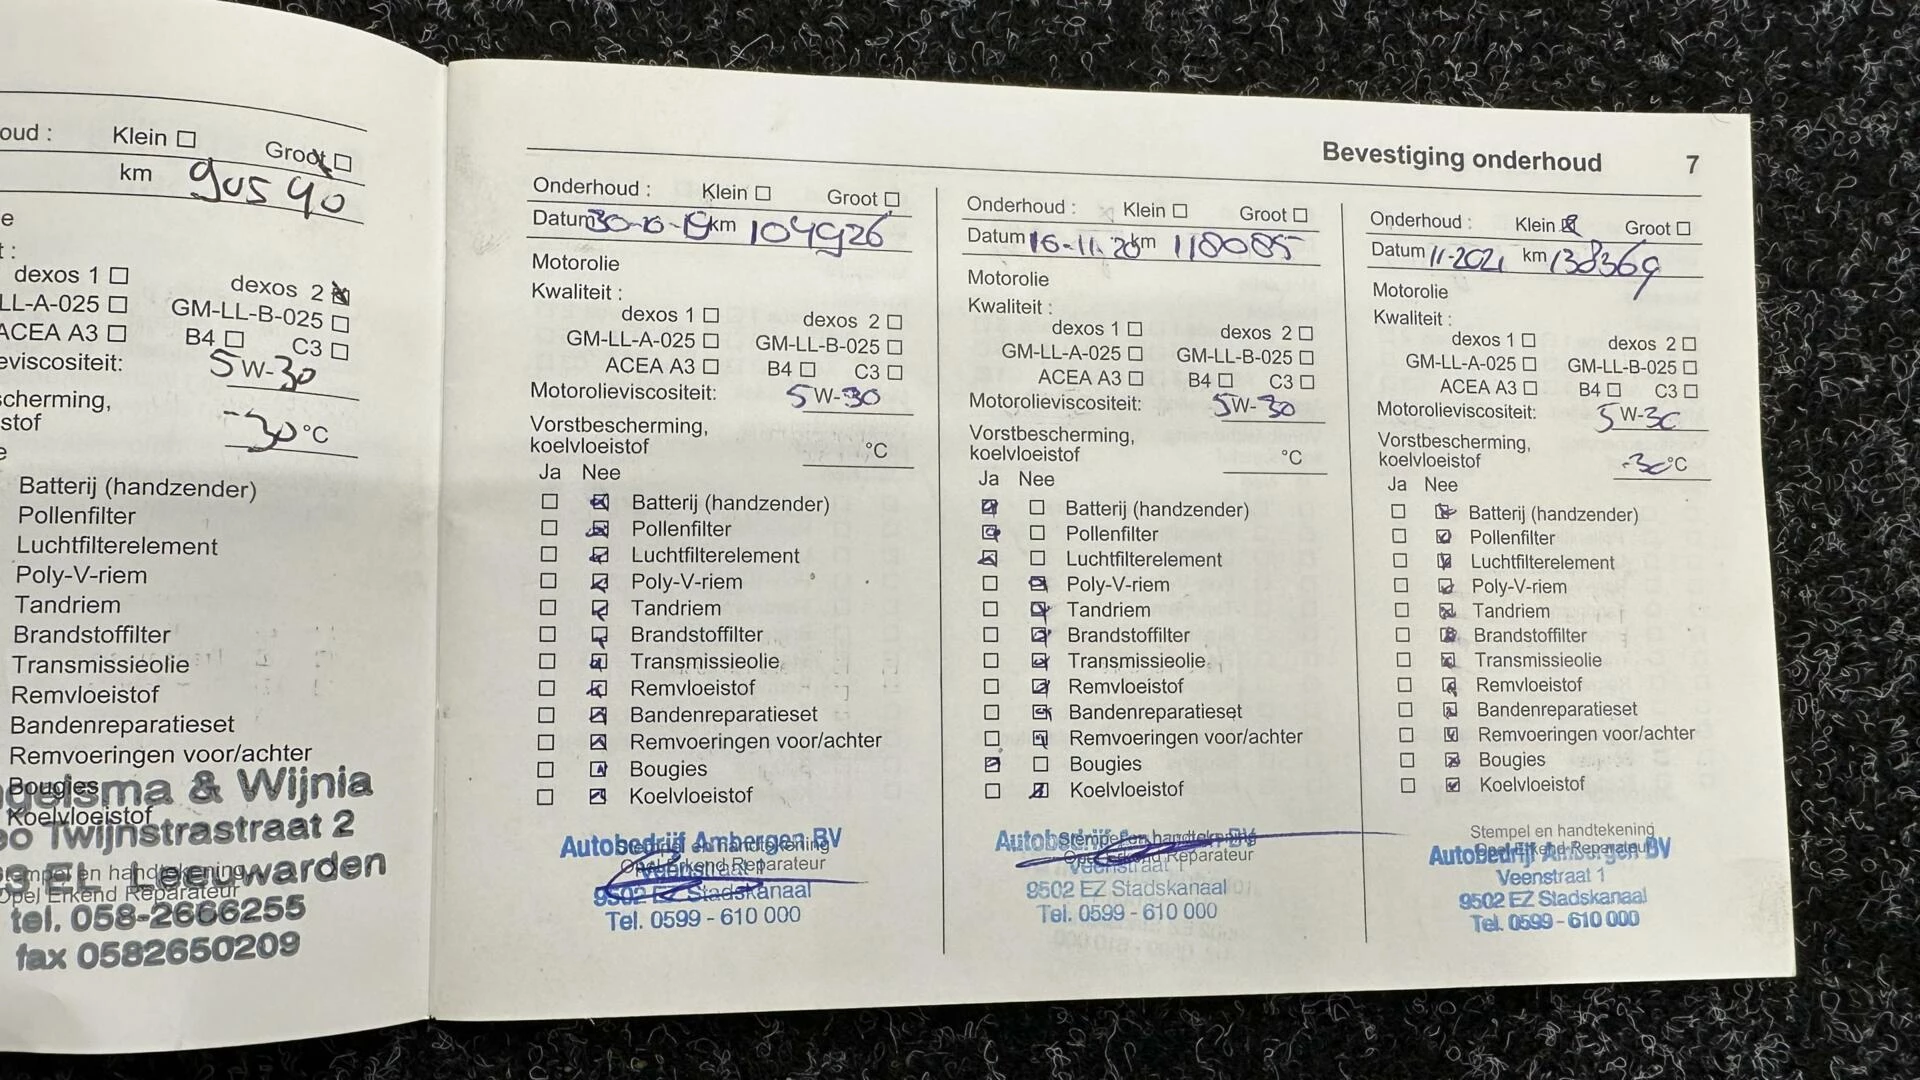 oud : Klein Groot
km 90590
e
t :
dexos 1 dexos 2
LL-A-025 GM-LL-B-025
ACEA A3 B4 C3
eviscositeit: 5 W-30
scherming,
stof -30 °C
e
Batterij (handzender)
Pollenfilter
Luchtfilterelement
Poly-V-riem
Tandriem
Brandstoffilter
Transmissieolie
Remvloeistof
Bandenreparatieset
Remvoeringen voor/achter
Bougies
Koelvloeistof
gelsma & Wijnia
eo Twijnstrastraat 2
Stempel en handtekening
Opel Erkend Reparateur
3 EL Leeuwarden
tel. 058-2666255
fax 0582650209
Bevestiging onderhoud 7
Onderhoud : Klein Groot
Datum km 104926
Motorolie
Kwaliteit :
dexos 1 dexos 2
GM-LL-A-025 GM-LL-B-025
ACEA A3 B4 C3
Motorolieviscositeit: 5 W-30
Vorstbescherming,
koelvloeistof °C
Ja Nee
Batterij (handzender)
Pollenfilter
Luchtfilterelement
Poly-V-riem
Tandriem
Brandstoffilter
Transmissieolie
Remvloeistof
Bandenreparatieset
Remvoeringen voor/achter
Bougies
Koelvloeistof
Stempel en handtekening
Opel Erkend Reparateur
Autobedrijf Ambergen BV
Veenstraat 1
9502 EZ Stadskanaal
Tel. 0599 - 610 000
Onderhoud : Klein Groot
Datum 16-11-20 km 118085
Motorolie
Kwaliteit :
dexos 1 dexos 2
GM-LL-A-025 GM-LL-B-025
ACEA A3 B4 C3
Motorolieviscositeit: 5W-30
Vorstbescherming,
koelvloeistof °C
Ja Nee
Batterij (handzender)
Pollenfilter
Luchtfilterelement
Poly-V-riem
Tandriem
Brandstoffilter
Transmissieolie
Remvloeistof
Bandenreparatieset
Remvoeringen voor/achter
Bougies
Koelvloeistof
Stempel en handtekening
Opel Erkend Reparateur
Autobedrijf Ambergen BV
Veenstraat 1
9502 EZ Stadskanaal
Tel. 0599 - 610 000
Onderhoud : Klein Groot
Datum 11-2021 km 138369
Motorolie
Kwaliteit :
dexos 1 dexos 2
GM-LL-A-025 GM-LL-B-025
ACEA A3 B4 C3
Motorolieviscositeit: 5 W-30
Vorstbescherming,
koelvloeistof -30°C
Ja Nee
Batterij (handzender)
Pollenfilter
Luchtfilterelement
Poly-V-riem
Tandriem
Brandstoffilter
Transmissieolie
Remvloeistof
Bandenreparatieset
Remvoeringen voor/achter
Bougies
Koelvloeistof
Stempel en handtekening
Opel Erkend Reparateur
Autobedrijf Ambergen BV
Veenstraat 1
9502 EZ Stadskanaal
Tel. 0599 - 610 000